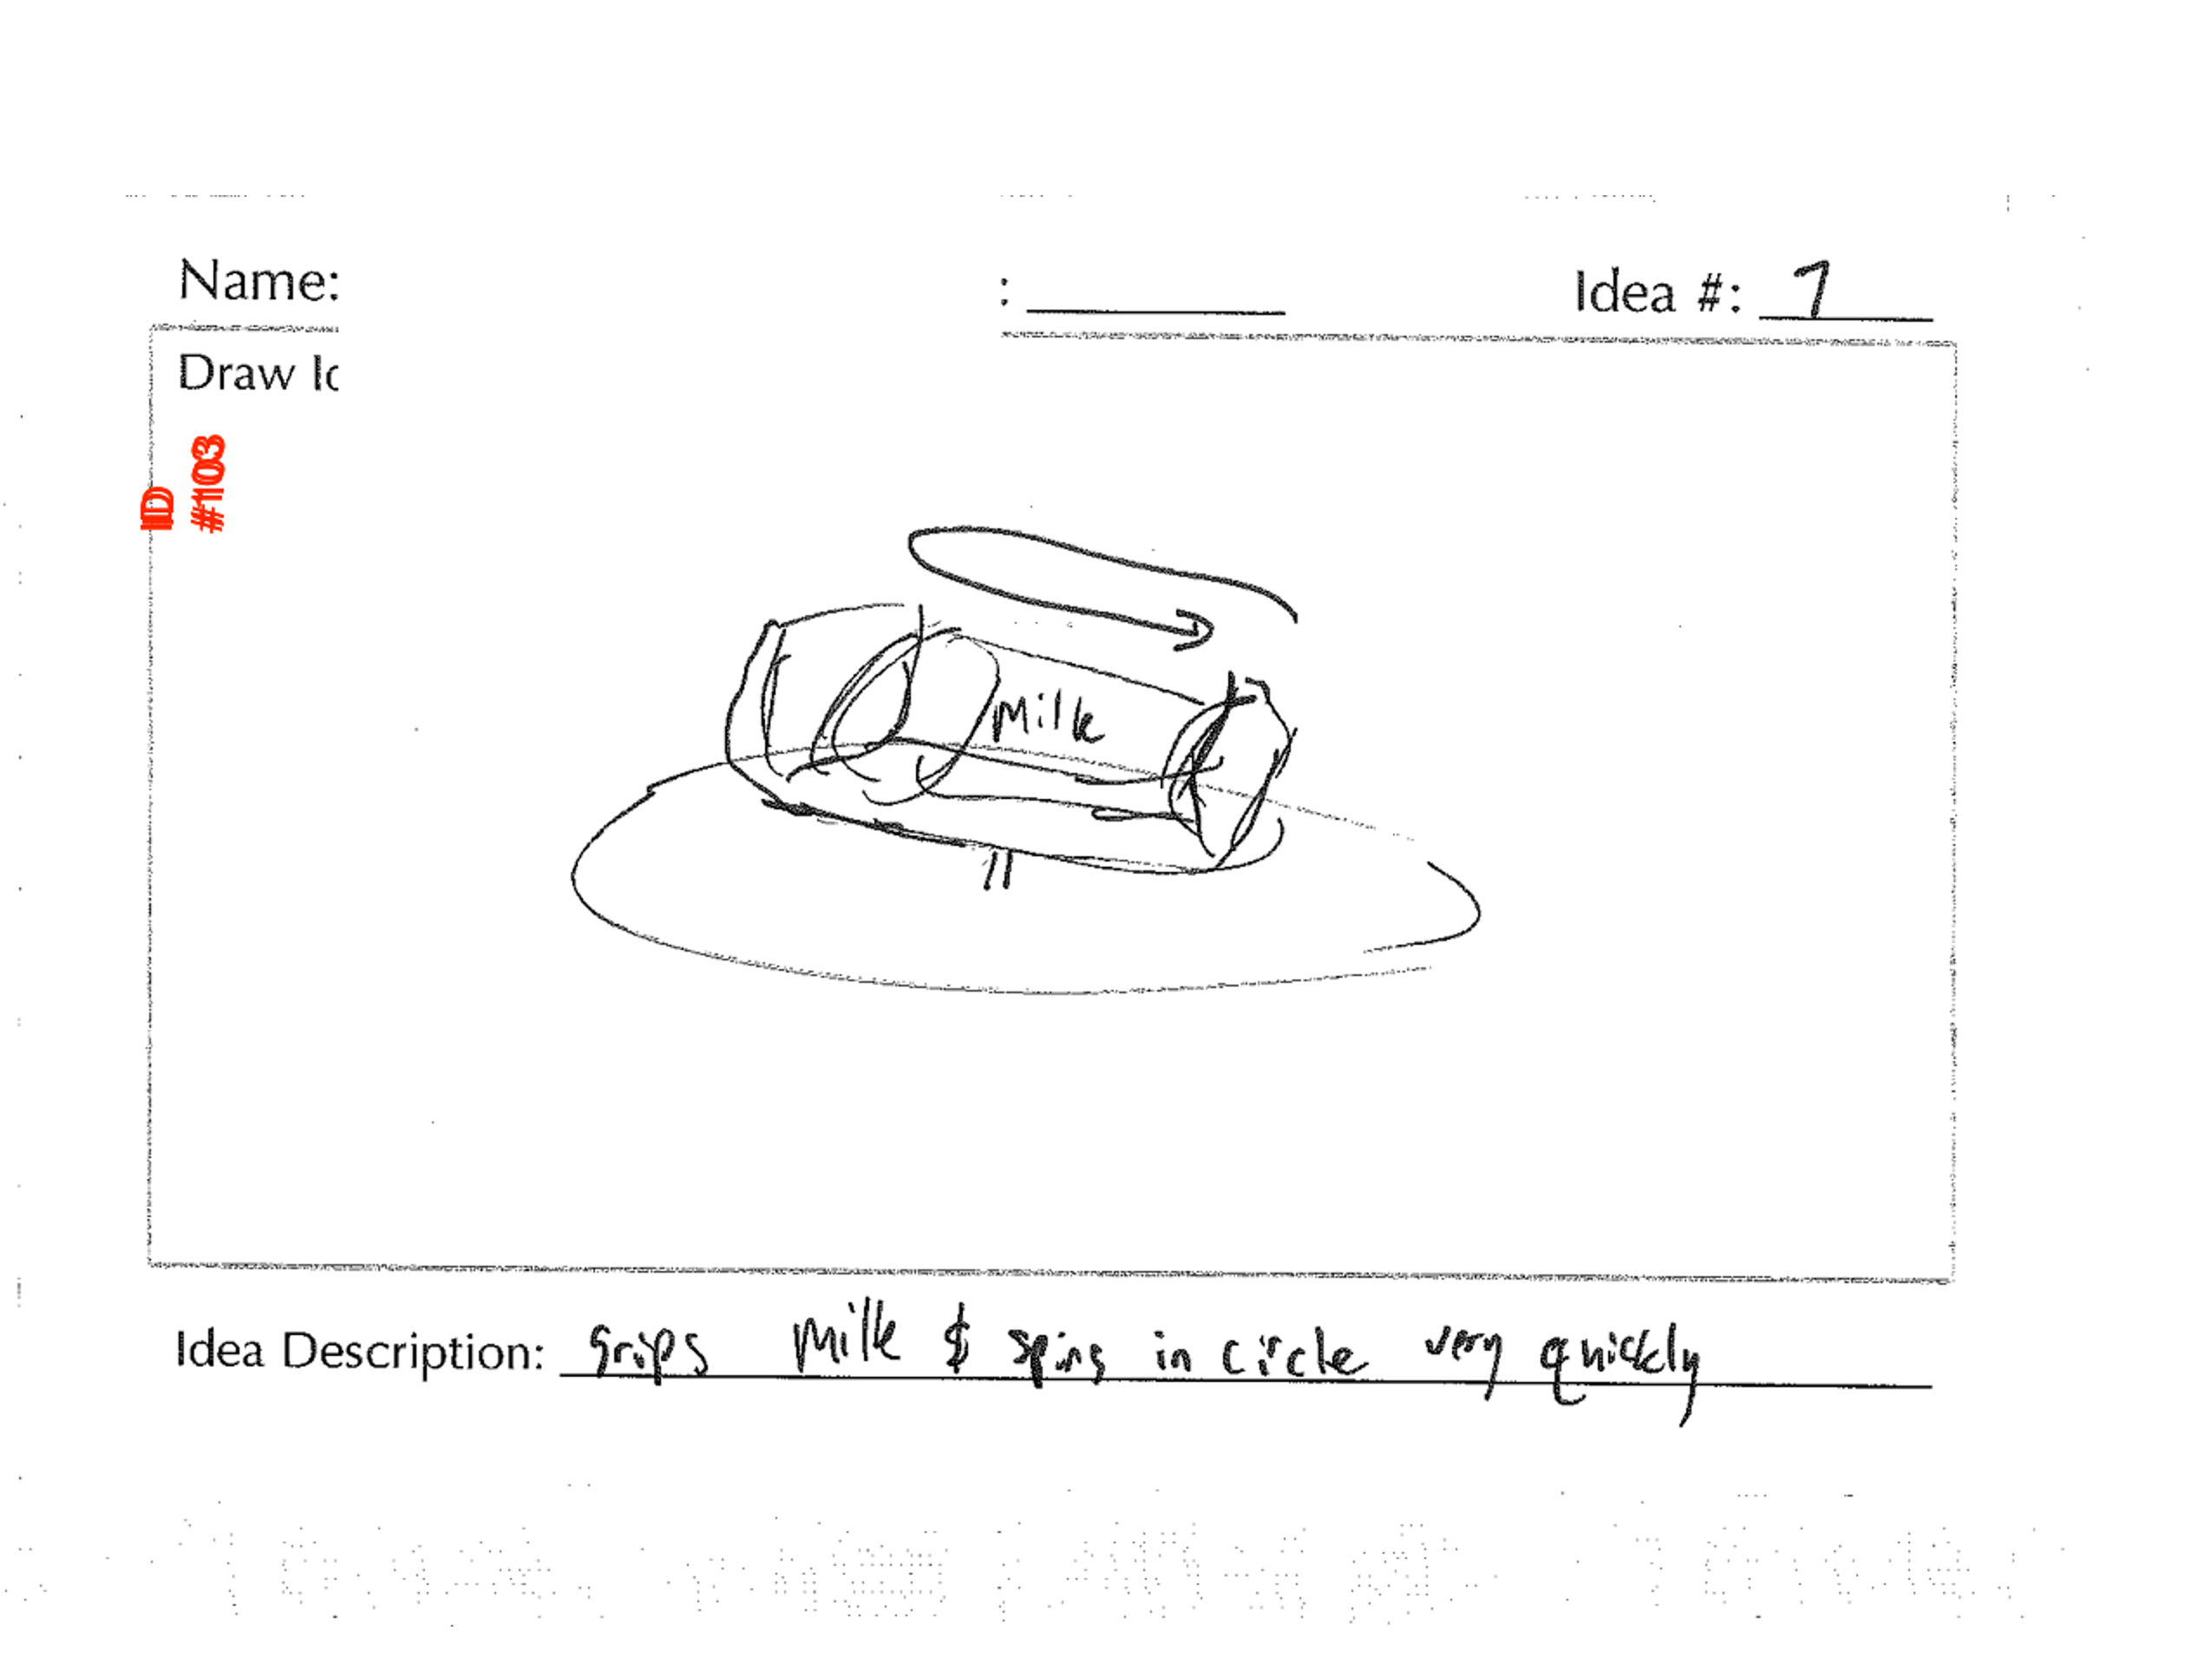 Name:
: Idea #: 1
Draw Id
ID
#1103
Milk
Idea Description: Grips Milk & spins in circle very quickly